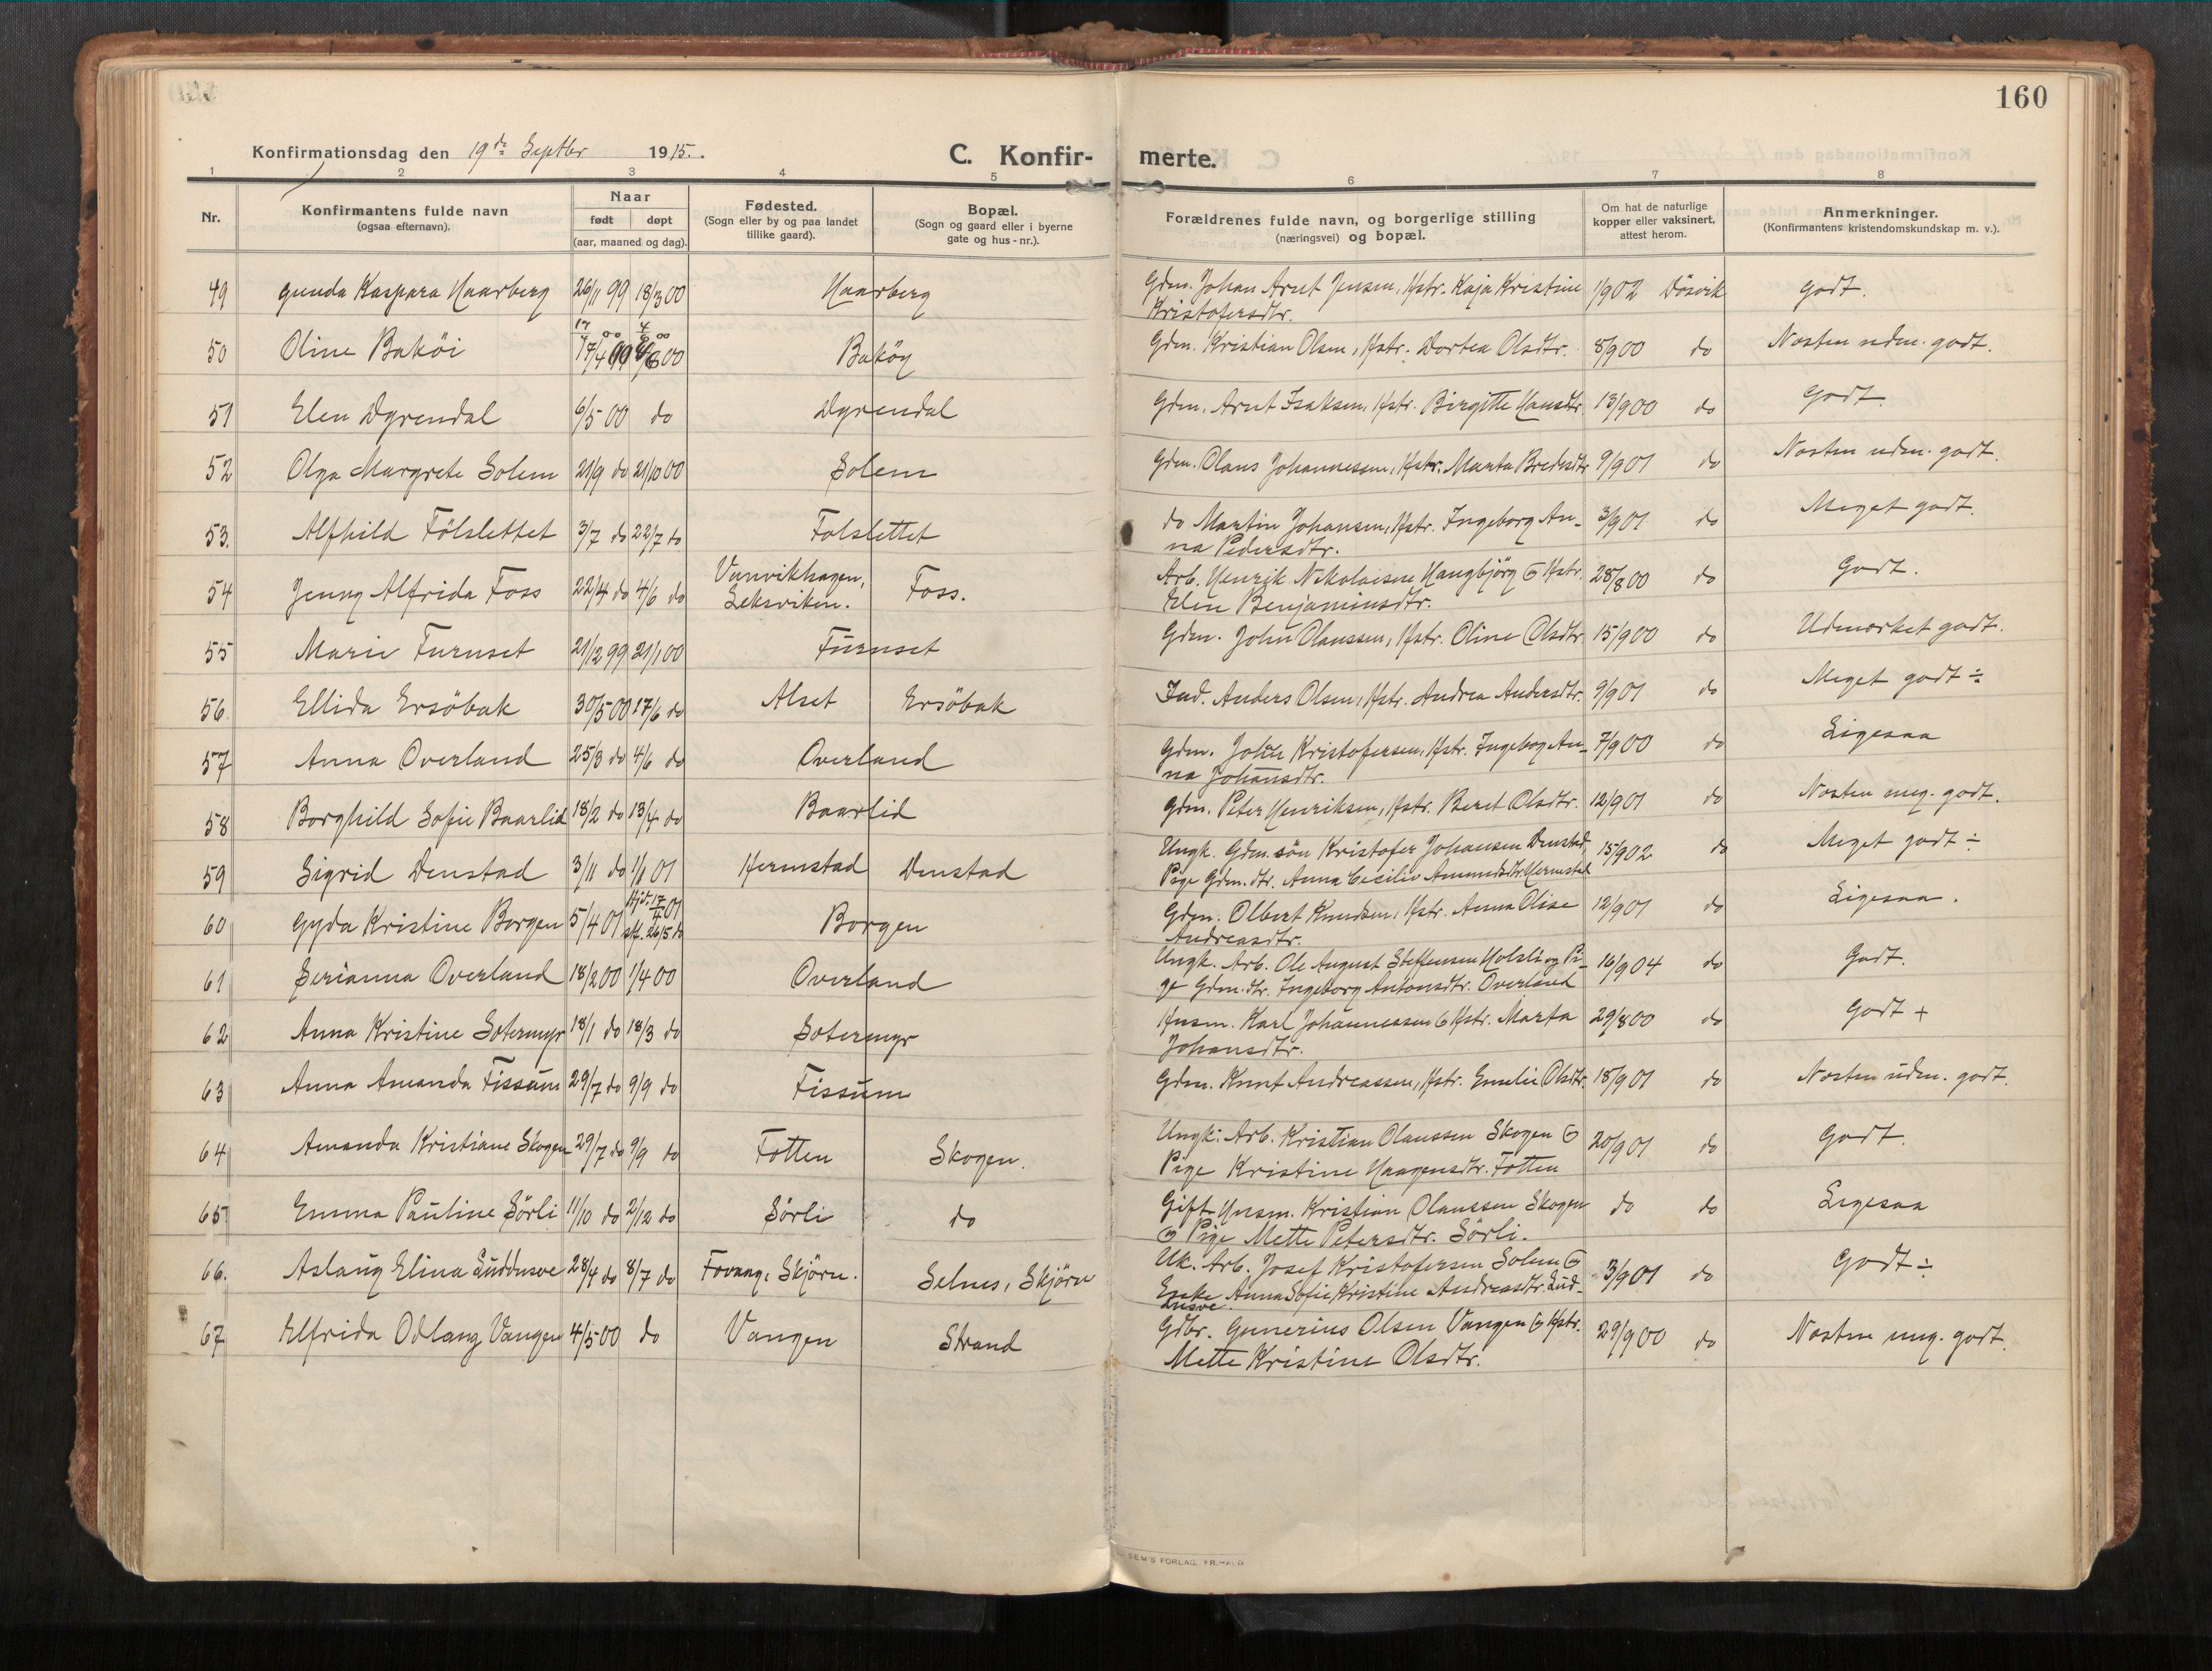 160
Konfirmationsdag den 19de Septbr 1915.
C. Konfir- merte.
1 2 3 4 5 6 7 8
Nr.
Konfirmantens fulde navn
(ogsaa efternavn).
Naar
født døpt
(aar, maaned og dag).
Fødested.
(Sogn eller by og paa landet
tillike gaard).
Bopæl.
(Sogn og gaard eller i byerne
gate og hus-nr.).
Forældrenes fulde navn, og borgerlige stilling
(næringsvei) og bopæl.
Om hat de naturlige
kopper eller vaksinert,
attest herom.
Anmerkninger.
(Konfirmantens kristendomskundskap m. v.).
49 Gunda Kaspara Haarberg 26/11 99 18/3 00 Haarberg Gdm. Johan Arnt Jensen, Hstr. Kaja Kristine 1/9 02 Dösvik Godt.
Kristofersdtr.
17/4 00 4/6 00
50 Oline Baköi 17/4 00 Baköy Gdm. Kristian Olsen, Hstr. Dortea Olsdtr. 8/9 00 do Næsten udm. godt.
51 Elen Dyrendal 6/5 00 do Dyrendal Gdm. Arnt Isaksen, Hstr. Birgitte Hansdtr. 13/9 00 do Godt.
52 Olga Margrete Solem 21/9 do 21/10 00 Solem Gdm. Olaus Johannessen, Hstr. Marta 9/9 01 do Næsten udm. godt.
53. Alfhild Fölslettet 3/7 do 22/7 do Følslettet do Martin Johansen, Hstr. Ingeborg An- 3/9 01 do Meget godt.
na Pedersdtr.
54 Jenny Alfrida Foss 22/4 do 4/6 do Vanvikhagen, Foss. Arb. Henrik Nikolaisen Haugbjörg & Hstr. 28/8 00 do Godt.
Leksviken. Elen Benjaminsdtr.
55 Marie Furuset 21/12 99 21/1 00 Furuset Gdm. John Olaussen, Hstr. Oline Olsdtr. 15/9 00 do Udmærket godt.
56. Ellida Ersöbak 30/5 00 17/6 do Alset Ersöbak Ind. Anders Olsen, Hstr. Andrea Andersdtr. 9/9 01 do Meget godt ÷
57 Anna Overland 25/3 do 4/6 do Overland Gdm. Kristofersen, Hstr. Ingebog An- 7/9 00 do Ligesaa
na Johansdtr.
58 Borghild Sofie Baarlid 18/2 do 13/4 do Baarlid Gdm. Peter Henriksen, Hstr. Beret Olsdtr. 12/9 01 do Næsten meg. godt.
59 Sigrid Denstad 3/11 do 1/1 01 Hermstad Denstad Ungk. Gdm.sön Kristofer Johansen Denstad, 15/9 02 do Meget godt ÷
Pige Gdm.dtr. Anna Cecilie Amundsdtr. Hermstad
Hjd. 17/4 01
60 Gyda Kristine Borgen 5/4 01 stf. 26/5 do Borgen Gdm. Olbert Knudsen, Hstr. Anna Olise 12/9 01 do Ligesaa.
Andreasdtr.
61 Serianna Overland 18/2 00 1/4 00 Overland Ungk. Arb. Ole August Steffensen Holsli og Pi- 16/9 04 do Godt.
ge Gdm.dtr. Ingeborg Antonsdtr. Overland
62 Anna Kristine Sotermyr 18/1 do 18/3 do Sotermyr Husm. Karl Johannessen & Hstr. Marta 29/8 00 do Godt +
Johansdtr.
63 Anna Amanda Fissum 29/7 do 9/9 do Fissum Gdm. Knut Andreassen, Hstr. Emelie Olsdtr. 18/9 01 do Næsten udm. godt.
64 Amanda Kristiane Skogen 29/7 do 9/9 do Føtten Skogen. Ungk. Arb. Kristian Olaussen Skogen & 20/9 01 do Godt.
Pige Kristine Haagensdtr. Føtten
65 Emma Pauline Sörli 11/10 do 2/12 do Sörli do Gift Husm. Kristian Olaussen Skogen do do Ligesaa
& Pige Mette Petersdtr. Sörli.
66. Aslaug Elina Luddusve 28/4 do 8/7 do Fevaag, Skjörn. Selnes, Skjörn Uk. Arb. Josef Kristofersen Solem & 3/9 01 do Godt ÷
Enke Anna Sofie Kristine Andreasdtr. Lud-
dusve.
67 Elfrida Odlaug Vangen 4/5 00 do Vangen Strand Gdbr. Gunerius Olsen Vangen & Hstr. 29/9 00 do Næsten meg. godt.
Mette Kristine Olsdtr.
SEM'S FORLAG, FR.HALD